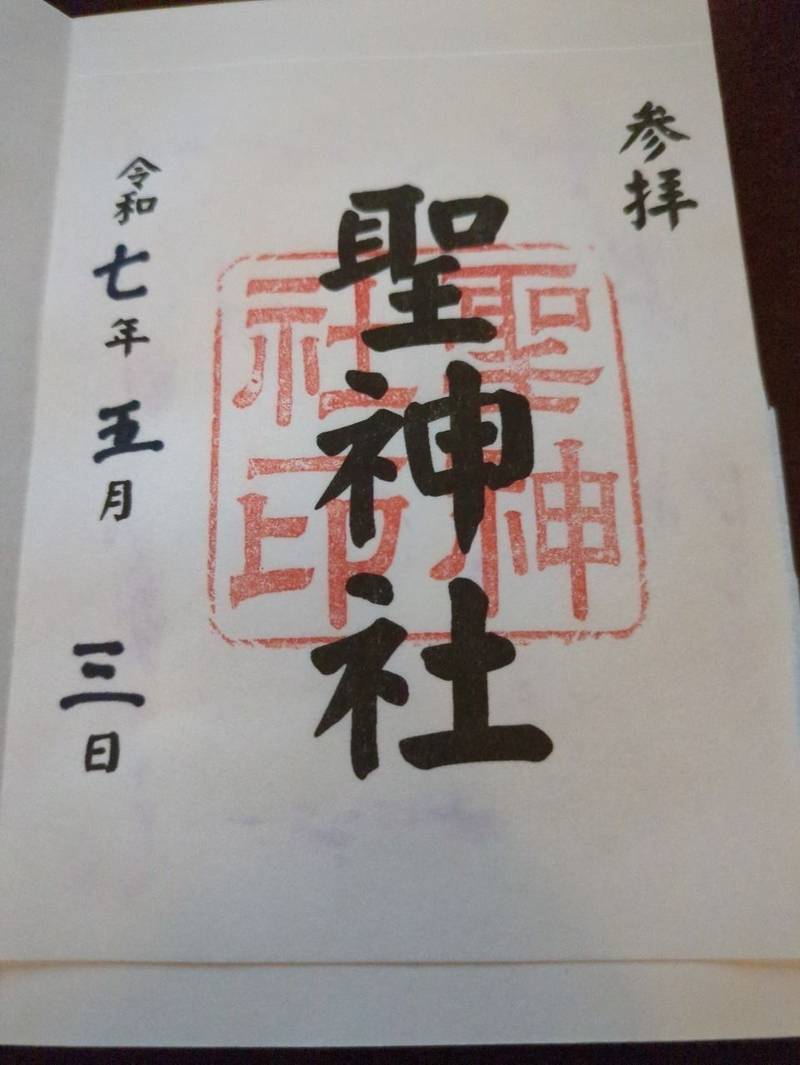 参拝
聖神社
聖神
社印
令和七年五月三日